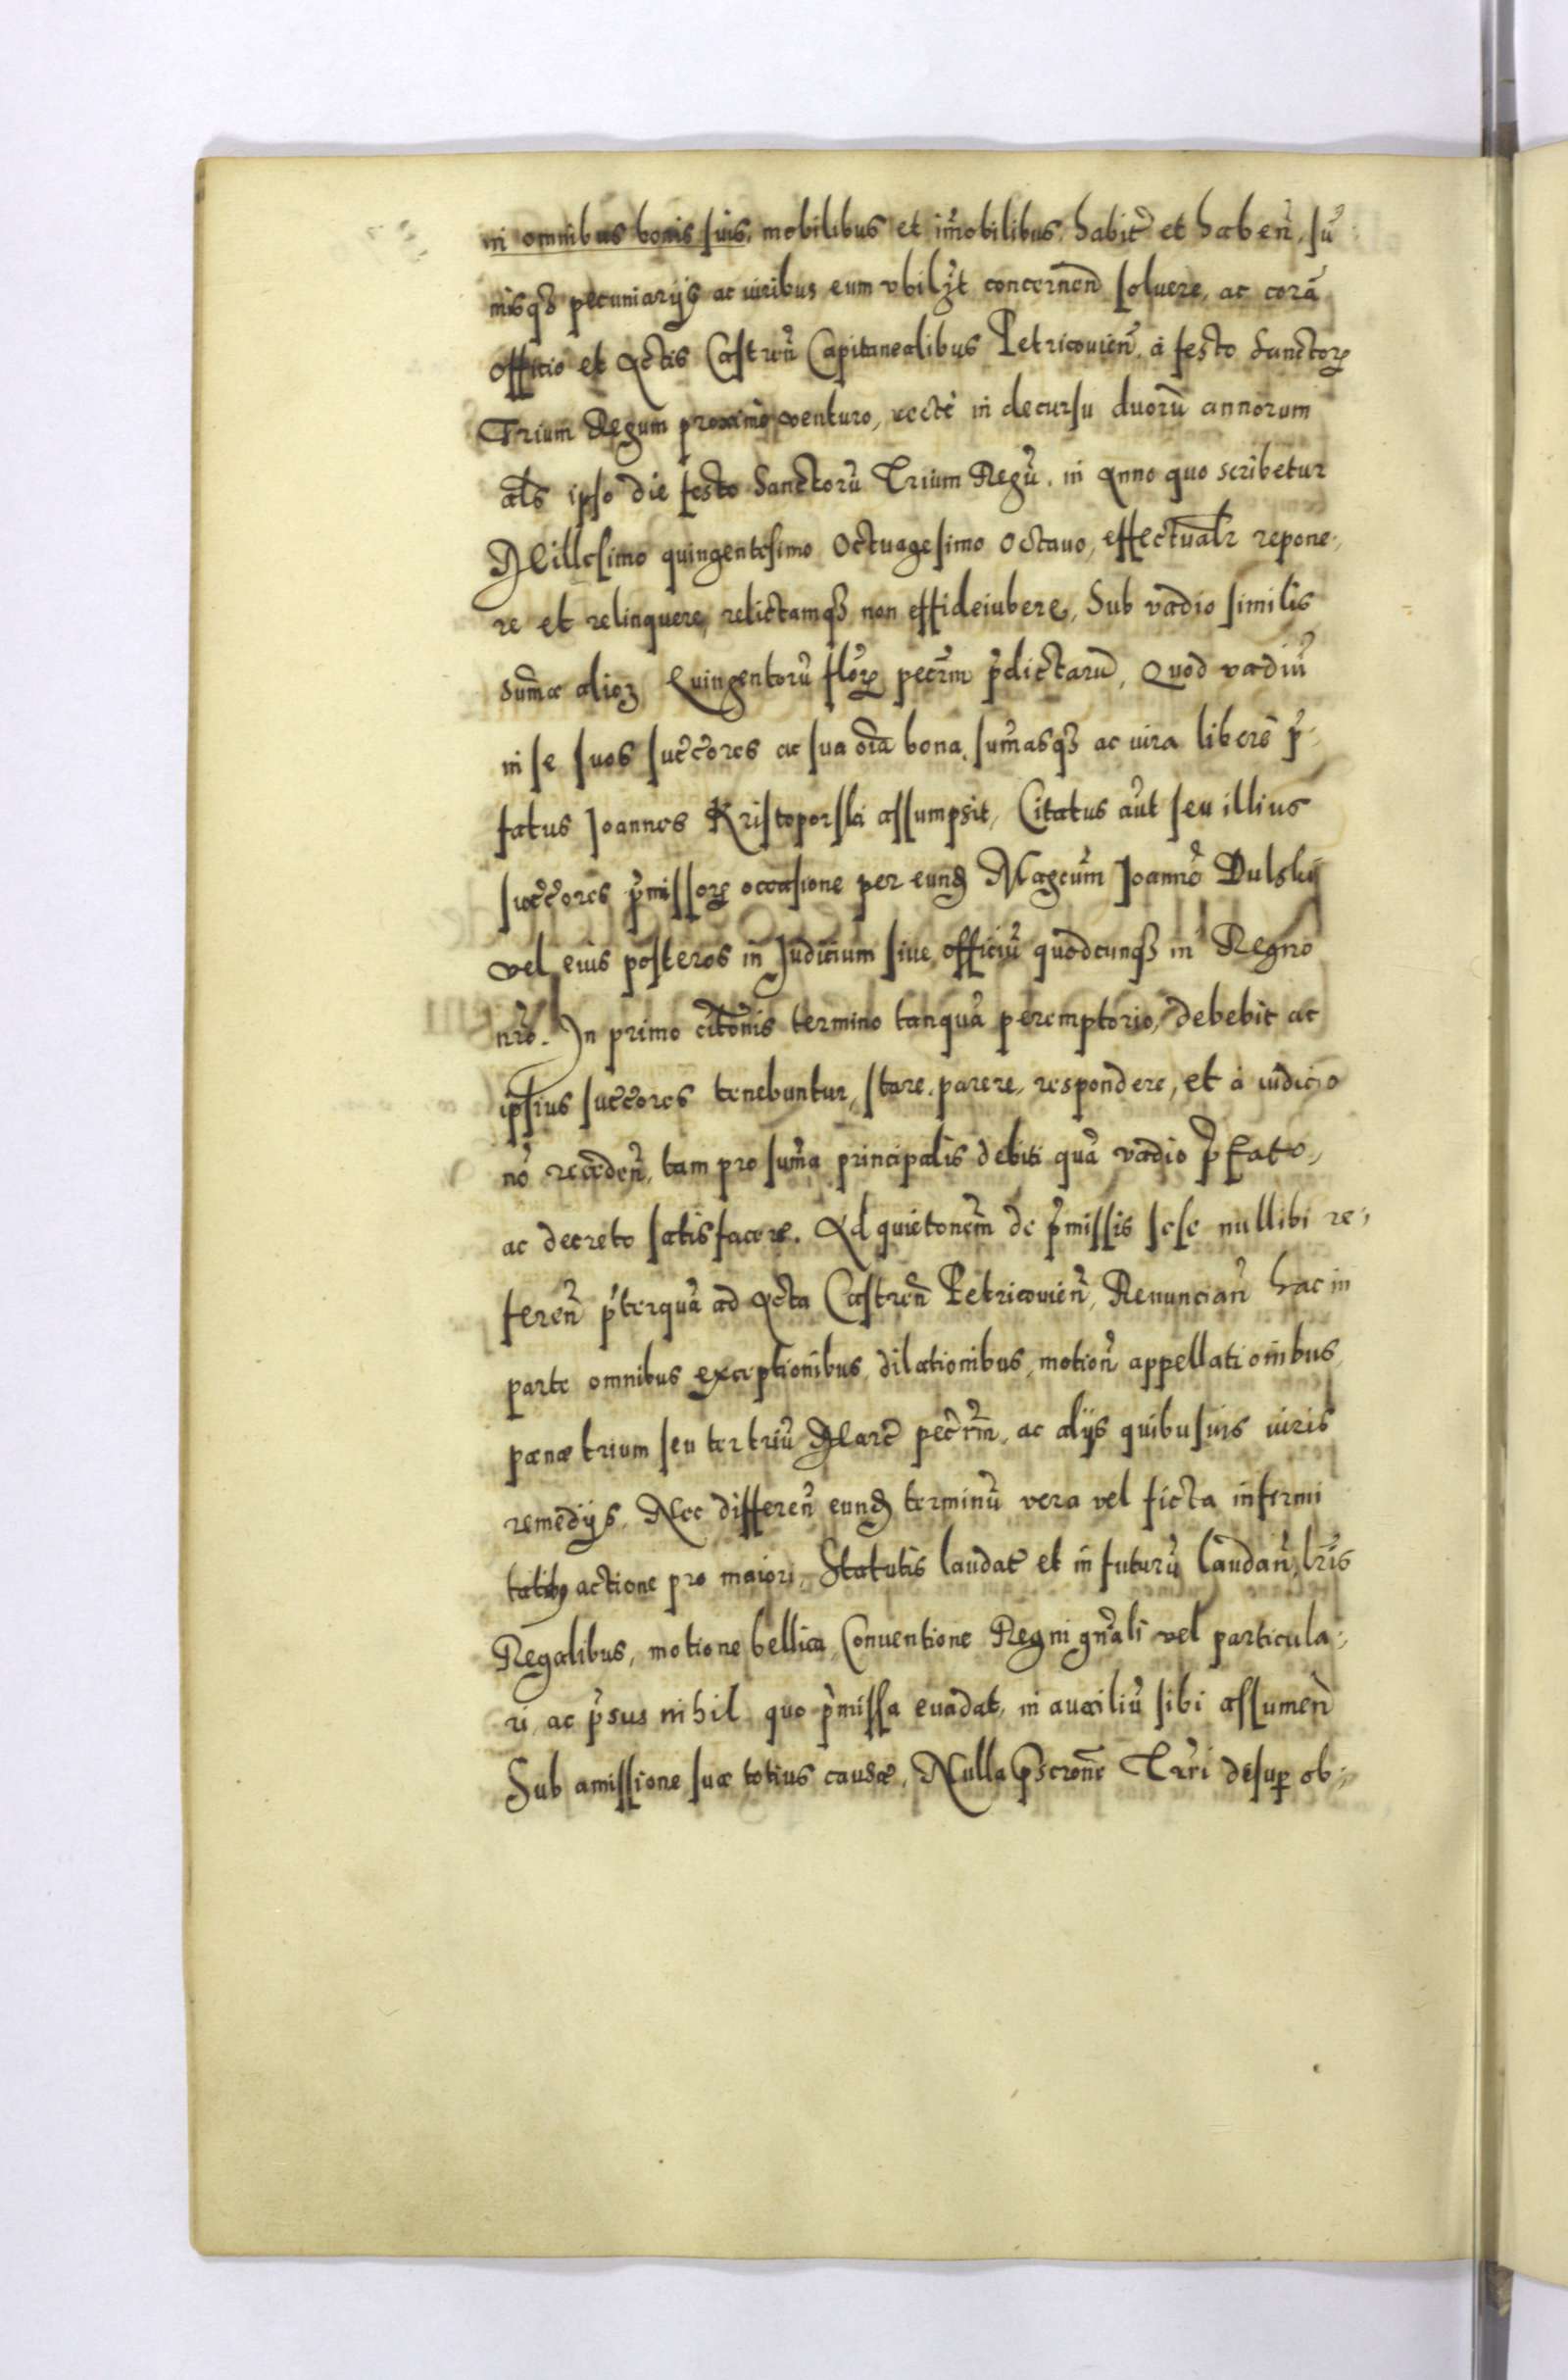 in omnibus bonis suis, mobilibus et im̃obilibus, habit̃ et haben̄, sũ
misqȝ pecuniarijs ac iuribus eum vbilƺt concernen̄ soluere, ac corã
officio et Actis Castren̄ Capitanealibus Petricouien̄. à festo Sanctorꝝ
Trium Regum proximè venturo, rectè in decursu duorũ annorum
als ipso die festo Sanctorũ Trium Regũ, in Anno quo scribetur
Millesimo quingentesimo Octuagesimo Octauo, effectualr̃ repone-
re et relinquere, relictamqȝ non effideiubere, Sub vadio similis
sum̃æ alioꝝ Quingentorũ flor̃ꝝ pecr̃m p̃dictarũ, Quod vadiũ
in se suos succ̃ores ac sua oĩa bona, sum̃asqȝ ac iura liberè p̃-
fatus Joannes Kristoporski assumpsit, Citatus aũt seu illius
succ̃ores p̃missorꝝ occasione per eund̃ Magcũm Joannẽ Dulsky
vel eius posteros in Judicium siue officiũ quodcunqȝ in Regno
nr̃o. In primo citõnis termino tanquã peremptorio, debebit ac
ipsius succ̃ores tenebuntur, stare, parere, respondere, et à iudicio
nõ receden̄, tam pro sum̃a principalis debiti quã vadio p̃fato,
ac decreto satisfacere. Ad quietonẽm de p̃missis sese nullibi re-
feren̄ p̃terquã ad Acta Castren̄ Petricouien̄, Renuncian̄ hac in
parte omnibus exceptionibus, dilationibus, motion̄ appellationibus,
pœnæ trium seu ter triũ Marc̃ pecr̃m, ac alijs quibusuis iuris
remedijs. Nec differen̄ eund̃ terminũ vera vel ficta infirmi
tatibȝ actione pro maiori, Statutis laudat̃ et in futurũ laudan̄, lr̃is
Regalibus, motione bellica, Conuentione Regni gñali vel particula-
ri, ac p̃sus nihil quo p̃missa euadat, in auxiliũ sibi assumen̄
Sub amissione suæ totius causæ. Nulla p̃scrõne Trr̃i desuꝑ ob-